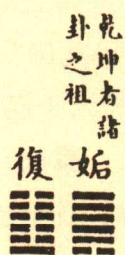 乾坤者諸
卦之祖
姤
復